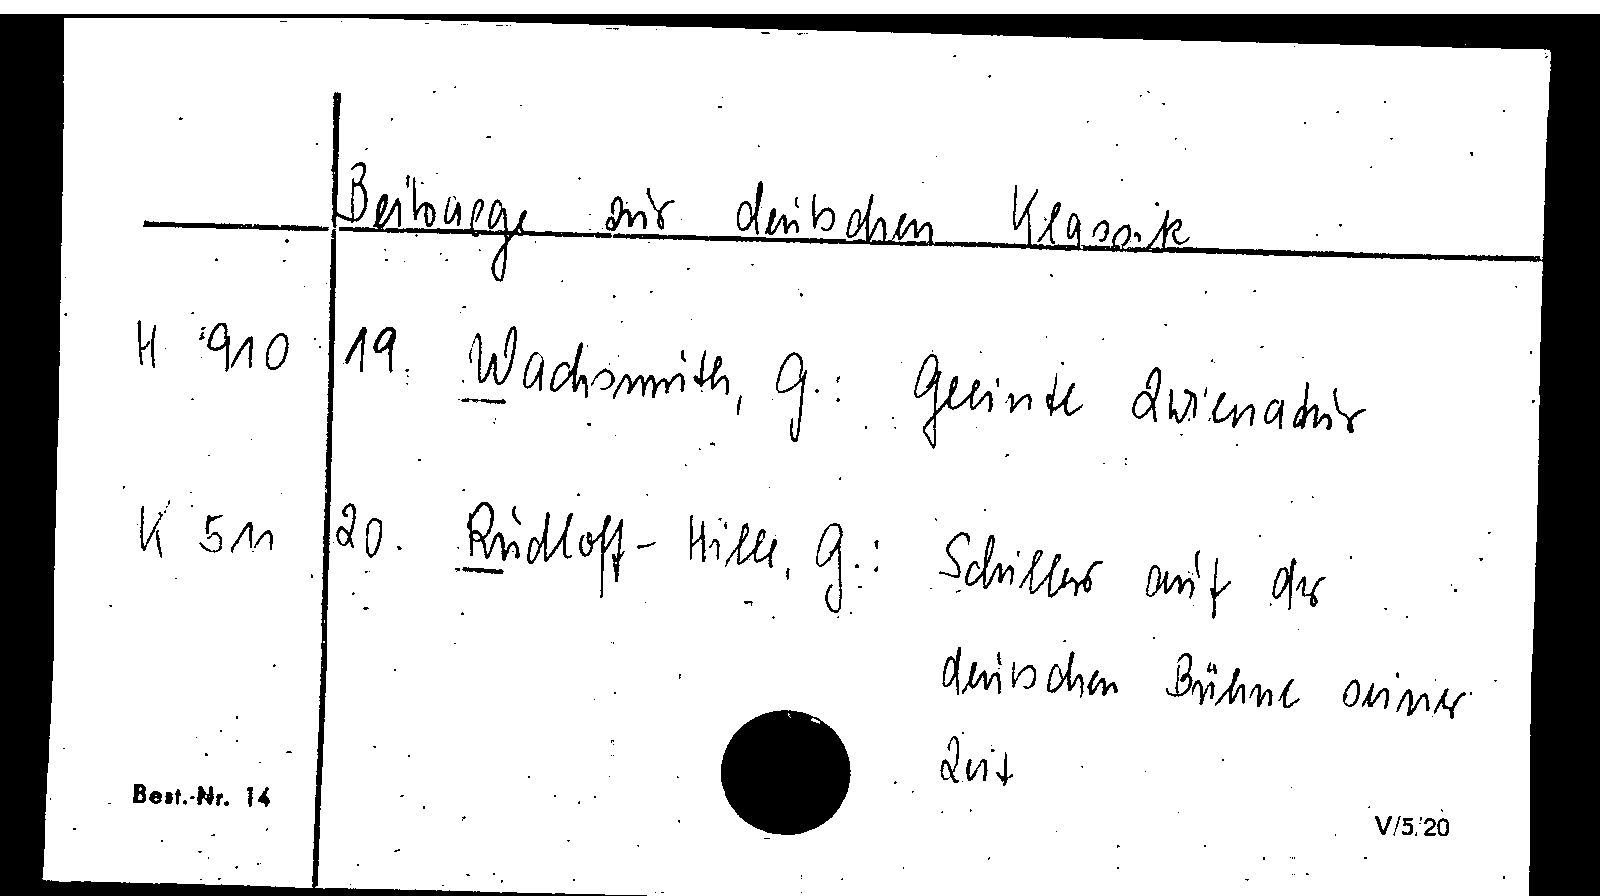 Beitraege zur deutschen Klassik
H 910 19. Wachsmuth, G.: Geeinte Zwienatur
K 511 20. Rudloff-Hille, G.: Schiller auf der
deutschen Bühne seiner
Zeit
Best.-Nr. 14
V/5/20